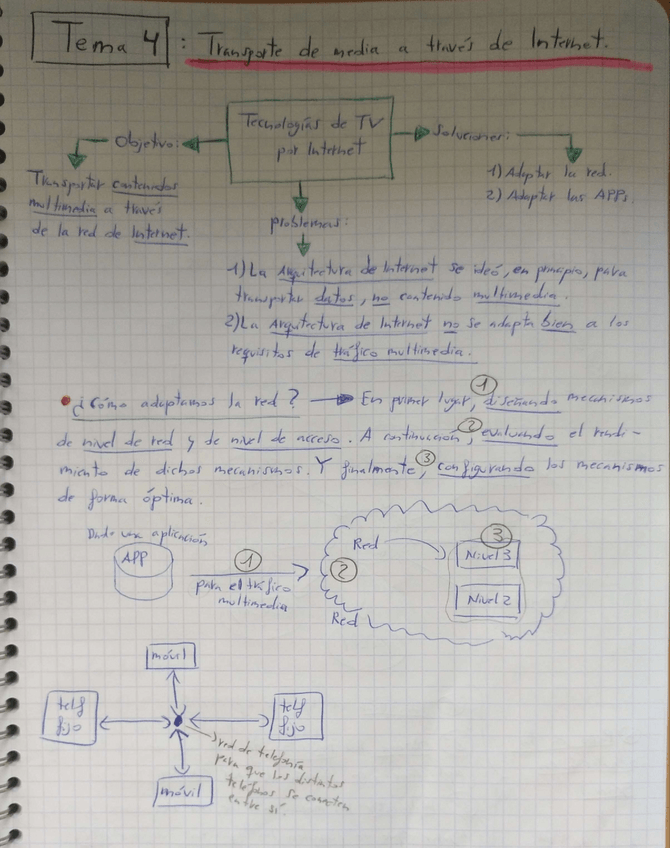 Tema 4 : Transporte de media a través de Internet.
Tecnologías de TV
por Internet
Objetivo:
Transportar contenidos
multimedia a través
de la red de Internet.
Soluciones:
1) Adaptar la red.
2) Adaptar las APPs.
problemas:
1) La Arquitectura de Internet se ideó, en principio, para
transportar datos, no contenido multimedia.
2) La Arquitectura de Internet no se adapta bien a los
requisitos de tráfico multimedia.
¿Cómo adaptamos la red? → En primer lugar, ① diseñando mecanismos
de nivel de red y de nivel de acceso. A continuación, ② evaluando el rendi-
miento de dichos mecanismos. Y finalmente, ③ configurando los mecanismos
de forma óptima.
Dada una aplicación
APP
①
para el tráfico
multimedia
②
Red
Red
③
Nivel 3
Nivel 2
móvil
telf
fijo
telf
fijo
móvil
red de telefonía
para que los distintos
teléfonos se conecten
entre sí.